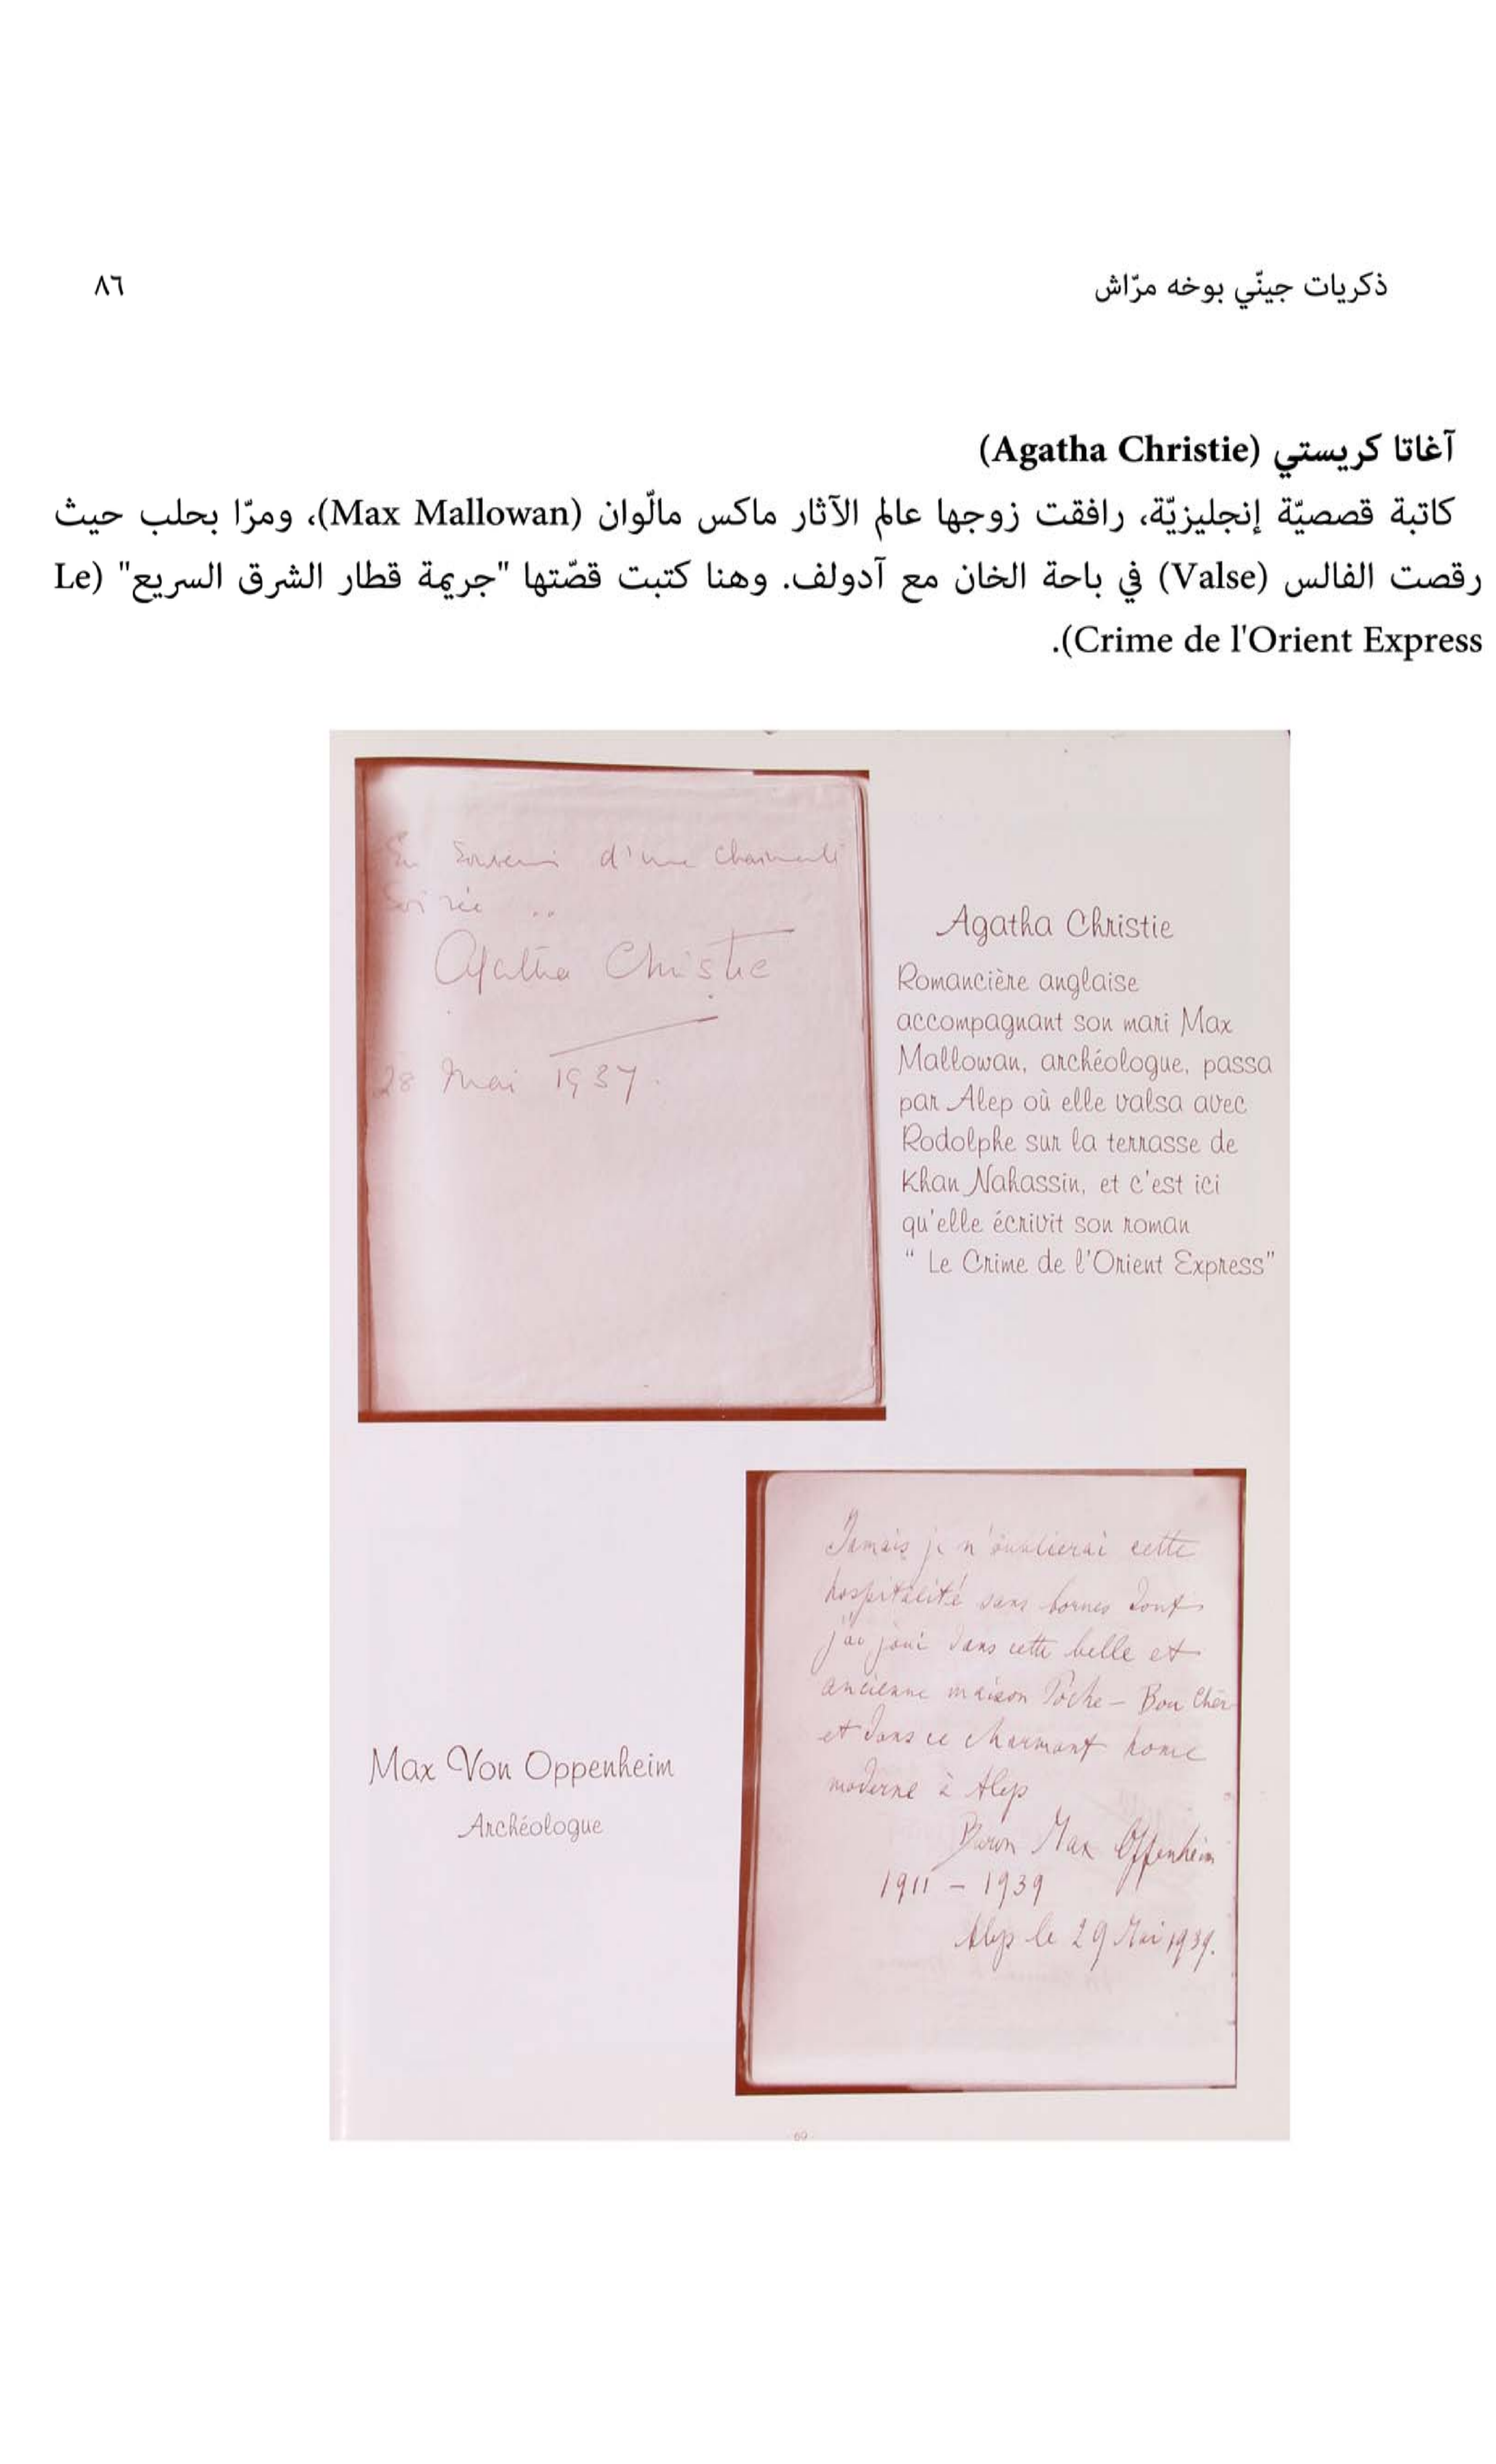 ذكريات جينّي بوخه مرّاش
٨٦
آغاتا كريستي (Agatha Christie)
كاتبة قصصيّة إنجليزيّة، رافقت زوجها عالم الآثار ماكس مالّوان (Max Mallowan)، ومرّا بحلب حيث
رقصت الفالس (Valse) في باحة الخان مع آدولف. وهنا كتبت قصّتها "جريمة قطار الشرق السريع" (Le
Crime de l'Orient Express).
En Souvenir d'une Charmante
Soirée ..
Agatha Christie
28 Mai 1937.
Agatha Christie
Romancière anglaise
accompagnant son mari Max
Mallowan, archéologue, passa
par Alep où elle valsa avec
Rodolphe sur la terrasse de
Khan Nahassin, et c'est ici
qu'elle écrivit son roman
" Le Crime de l'Orient Express"
Max Von Oppenheim
Archéologue
Jamais je n'oublierai cette
hospitalité sans bornes dont
j'ai joui dans cette belle et
ancienne maison Poche –
et dans ce charmant home
moderne à Alep
Baron Max Oppenheim
1911 – 1939
Alep le 29 Mai 1939.
69